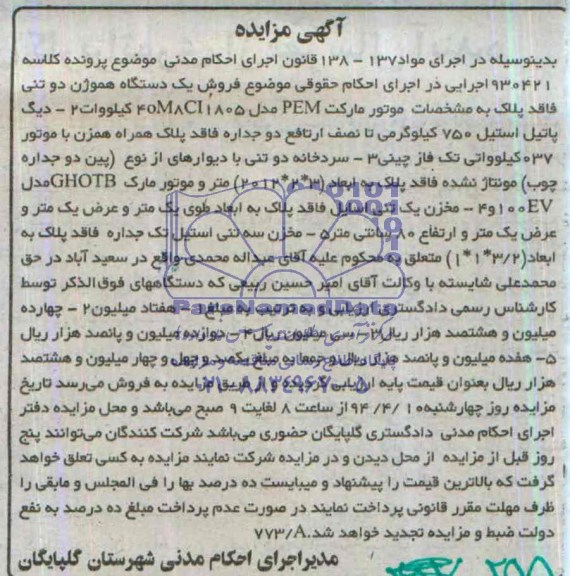 آگهی مزایده
بدینوسیله در اجرای مواد۱۳۷ - ۱۳۸ قانون اجرای احکام مدنی موضوع پرونده کلاسه
۹۳۰۴۲۱ اجرایی در اجرای احکام حقوقی موضوع فروش یک دستگاه هموژن دو تنی
فاقد پلاک به مشخصات موتور مارکت PEM مدل ۴۰MACI۱۸۰۵ کیلووات۲ - دیگ
پاتیل استیل ۷۵۰ کیلوگرمی تا نصف ارتافع دو جداره فاقد پلاک همراه همزن با موتور
۰۳۷کیلوواتی تک فاز چینی۳ - سردخانه دو تنی با دیوارهای از نوع (پین دو جداره
چوب) مونتاژ نشده فاقد پلاک به ابعاد متر و موتور مارک GHOTBمدل
۱۰۰EV و۴ - مخزن یک تنی استیل فاقد پلاک به ابعاد طوی یک متر و عرض یک متر و
عرض یک متر و ارتفاع ۸۰ سانتی متر۵ - مخزن سه تنی استیل تک جداره فاقد پلاک به
ابعاد(۳/۲*۱*۱) متعلق به محکوم علیه آقای عبداله محمدی واقع در سعید آباد در حق
محمدعلی شایسته با وکالت آقای امیر حسین ربیعی که دستگاههای فوق الذکر توسط
کارشناس رسمی دادگستری ارزیابی و به ترتیب به مبلغ ۱- هفتاد میلیون۲ - چهارده
میلیون و هشتصد هزار ریال۳- سی میلیون ریال۴- دوازده میلیون و پانصد هزار ریال
۵- هفده میلیون و پانصد هزار ریال و جمعا به مبلغ یکصد و چهل و چهار میلیون و هشتصد
هزار ریال بعنوان قیمت پایه ارزیابی گردیده و از طریق مزایده به فروش می‌رسد تاریخ
مزایده روز چهارشنبه۹۴/۴/۱۰ از ساعت ۸ لغایت ۹ صبح می‌باشد و محل مزایده دفتر
اجرای احکام مدنی دادگستری گلپایگان حضوری می‌باشد شرکت کنندگان می‌توانند پنج
روز قبل از مزایده از محل دیدن و در مزایده شرکت نمایند مزایده به کسی تعلق خواهد
گرفت که بالاترین قیمت را پیشنهاد و میبایست ده درصد بها را فی المجلس و مابقی را
ظرف مهلت مقرر قانونی پرداخت نمایند در صورت عدم پرداخت مبلغ ده درصد به نفع
دولت ضبط و مزایده تجدید خواهد شد.۷۷۳/A
مدیراجرای احکام مدنی شهرستان گلپایگان